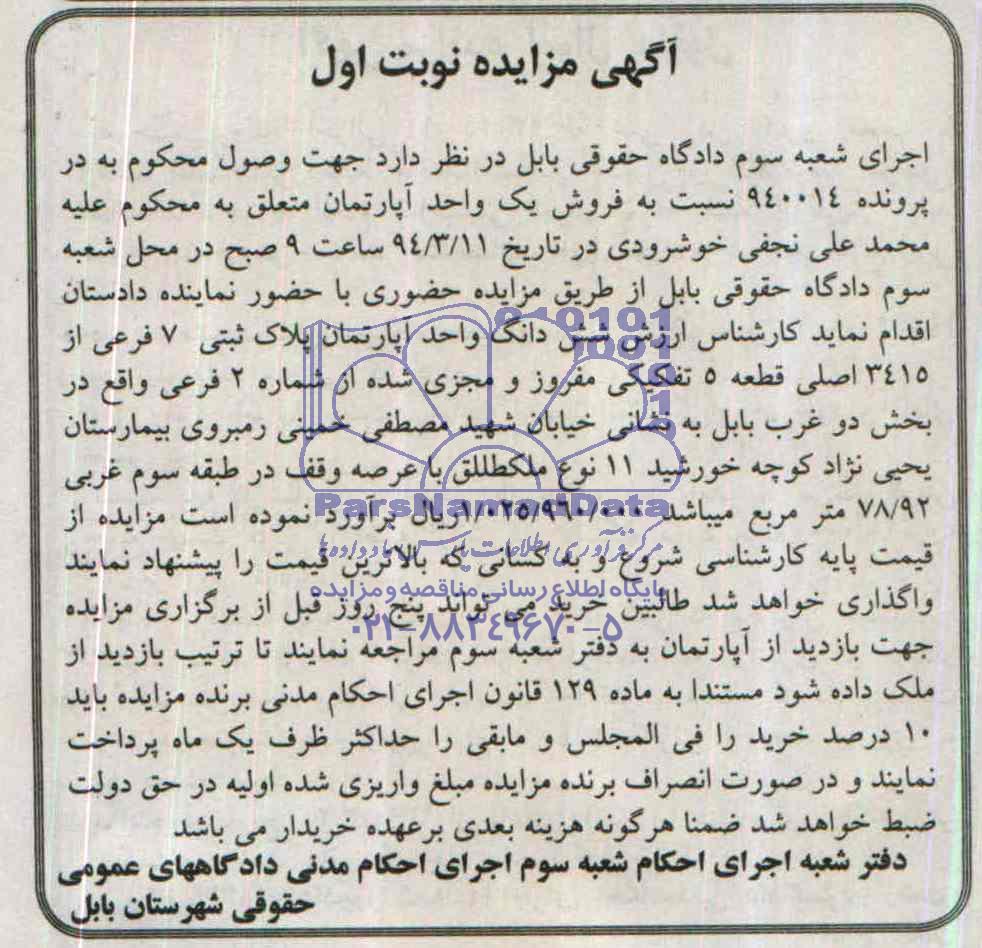 آگهی مزایده نوبت اول
اجرای شعبه سوم دادگاه حقوقی بابل در نظر دارد جهت وصول محکوم به در
پرونده ٩٤٠٠١٤ نسبت به فروش یک واحد آپارتمان متعلق به محکوم علیه
محمد علی نجفی خوشرودی در تاریخ ٩٤/٣/١١ ساعت ٩ صبح در محل شعبه
سوم دادگاه حقوقی بابل از طریق مزایده حضوری با حضور نماینده دادستان
اقدام نماید کارشناس ارزش شش دانگ واحد آپارتمان پلاک ثبتی ٧ فرعی از
٣٤١٥ اصلی قطعه ٥ تفکیکی مفروز و مجزی شده از شماره ٢ فرعی واقع در
بخش دو غرب بابل به نشانی خیابان شهید مصطفی خمینی رمبروی بیمارستان
یحیی نژاد کوچه خورشید ١١ نوع ملکطللق با عرصه وقف در طبقه سوم غربی
٧٨/٩٢ متر مربع میباشد ١/٠٢٥/٩٦٠/٠٠٠ریال برآورد نموده است مزایده از
قیمت پایه کارشناسی شروع و به کسانی که بالاترین قیمت را پیشنهاد نمایند
واگذاری خواهد شد طالبین خرید می تواند پنج روز قبل از برگزاری مزایده
جهت بازدید از آپارتمان به دفتر شعبه سوم مراجعه نمایند تا ترتیب بازدید از
ملک داده شود مستندا به ماده ١٢٩ قانون اجرای احکام مدنی برنده مزایده باید
١٠ درصد خرید را فی المجلس و مابقی را حداکثر ظرف یک ماه پرداخت
نمایند و در صورت انصراف برنده مزایده مبلغ واریزی شده اولیه در حق دولت
ضبط خواهد شد ضمنا هرگونه هزینه بعدی برعهده خریدار می باشد
دفتر شعبه اجرای احکام شعبه سوم اجرای احکام مدنی دادگاههای عمومی
حقوقی شهرستان بابل
ParsNamadData
مرکز فرآوری اطلاعات پارس نماد داده ها
پایگاه اطلاع رسانی مناقصه و مزایده
۰۲۱-۸۸۳۴۹۶۷۰-۵